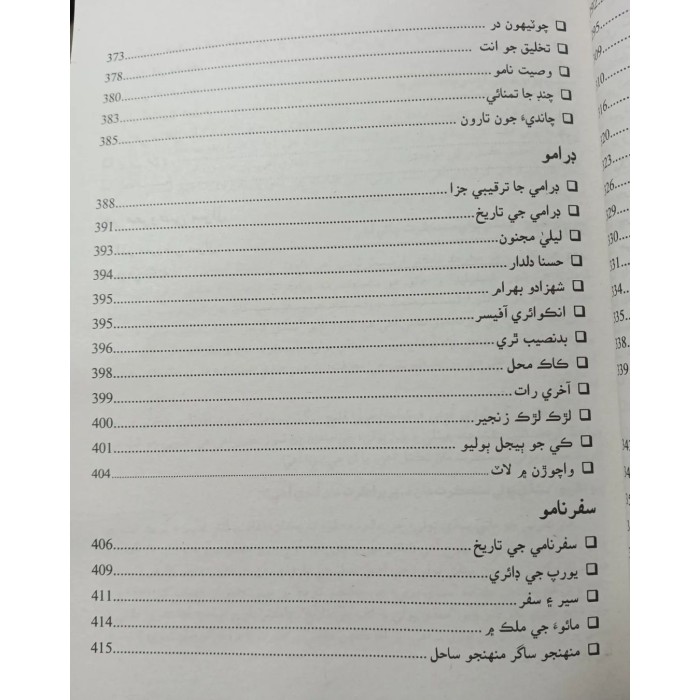 ❑ چوٿيهون در
❑ تخليق جو انت ........ 373
❑ وصيت نامو ........ 378
❑ چنڊ جا تمنائي ........ 380
❑ چانديءَ جون تارون ........ 383
385
ڊرامو
❑ ڊرامي جا ترقيبي جزا ........ 388
❑ ڊرامي جي تاريخ ........ 391
❑ ليليٰ مجنون ........ 393
❑ حسنا دلدار ........ 394
❑ شهزادو بهرام ........ 395
❑ انڪوائري آفيسر ........ 395
❑ بدنصيب ٿري ........ 396
❑ ڪاڪ محل ........ 398
❑ آخري رات ........ 399
❑ لڙڪ لڙڪ زنجير ........ 400
❑ ڪي جو ٻيجل ٻوليو ........ 401
❑ واچوڙن ۾ لاٽ ........ 404
سفرنامو
❑ سفرنامي جي تاريخ ........ 406
❑ يورپ جي ڊائري ........ 409
❑ سير ۽ سفر ........ 411
❑ مائوءَ جي ملڪ ۾ ........ 414
❑ منهنجو ساگر منهنجو ساحل ........ 415